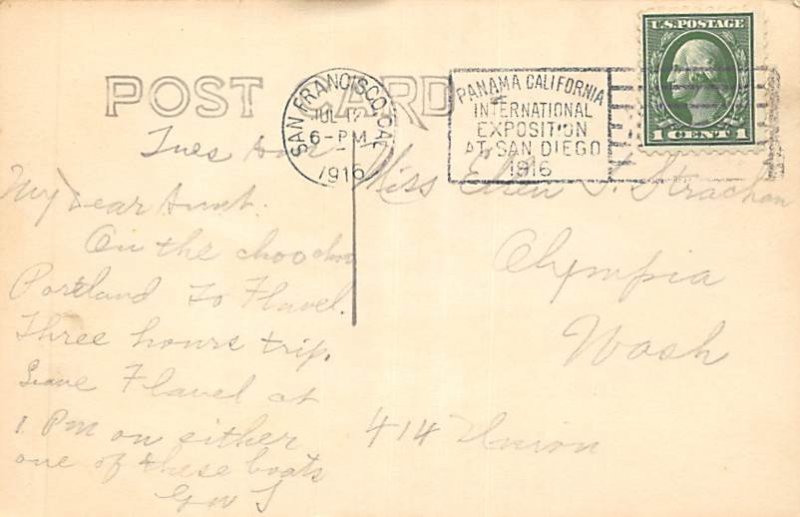 POST CARD
SAN FRANCISCO, CAL.
JUL 12
6-PM
1916
PANAMA CALIFORNIA
INTERNATIONAL
EXPOSITION
AT SAN DIEGO
1916
U.S. POSTAGE
1 CENT 1
Tues
My Dear Aunt.
On the choo choo
Portland to Flavel.
Three hours trip.
Leave Flavel at
1 PM on either
one of these boats
G W S
Miss Ellen S. Strachan
Olympia
Wash
414 Union